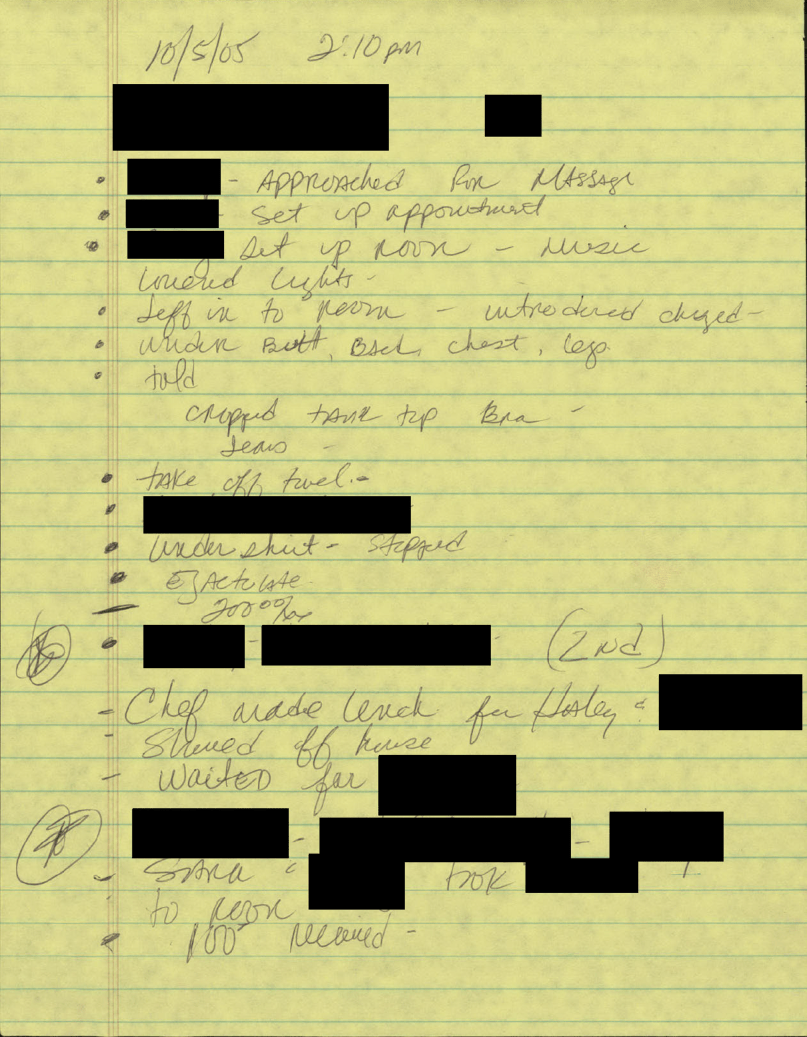 10/5/05 2:10 pm
- Approached for Massage
- Set up appointment
Set up room - Music
Lowered Lights -
Jeff in to Room - introduced
under Butt, Back, chest, legs
told
cropped tank top Bra -
Jeans -
take off towel -
Under shirt - Stopped
Ejaculate
200
- (2nd)
- Chef made lunch for Haley &
- Showed off house
- Waited for
- -
Sara & took
to room
100 received -